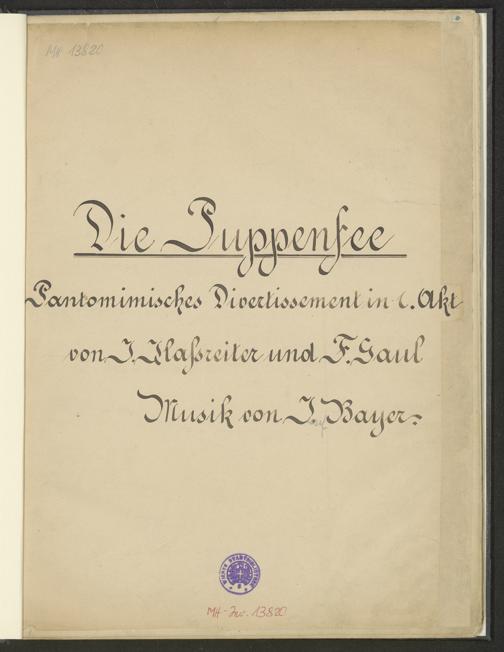 MH 13820
Die Puppenfee
Pantomimisches Divertissement in 1. Akt
von J. Haßreiter und F. Gaul
Musik von J. Bayer.
MH-Inv. 13820